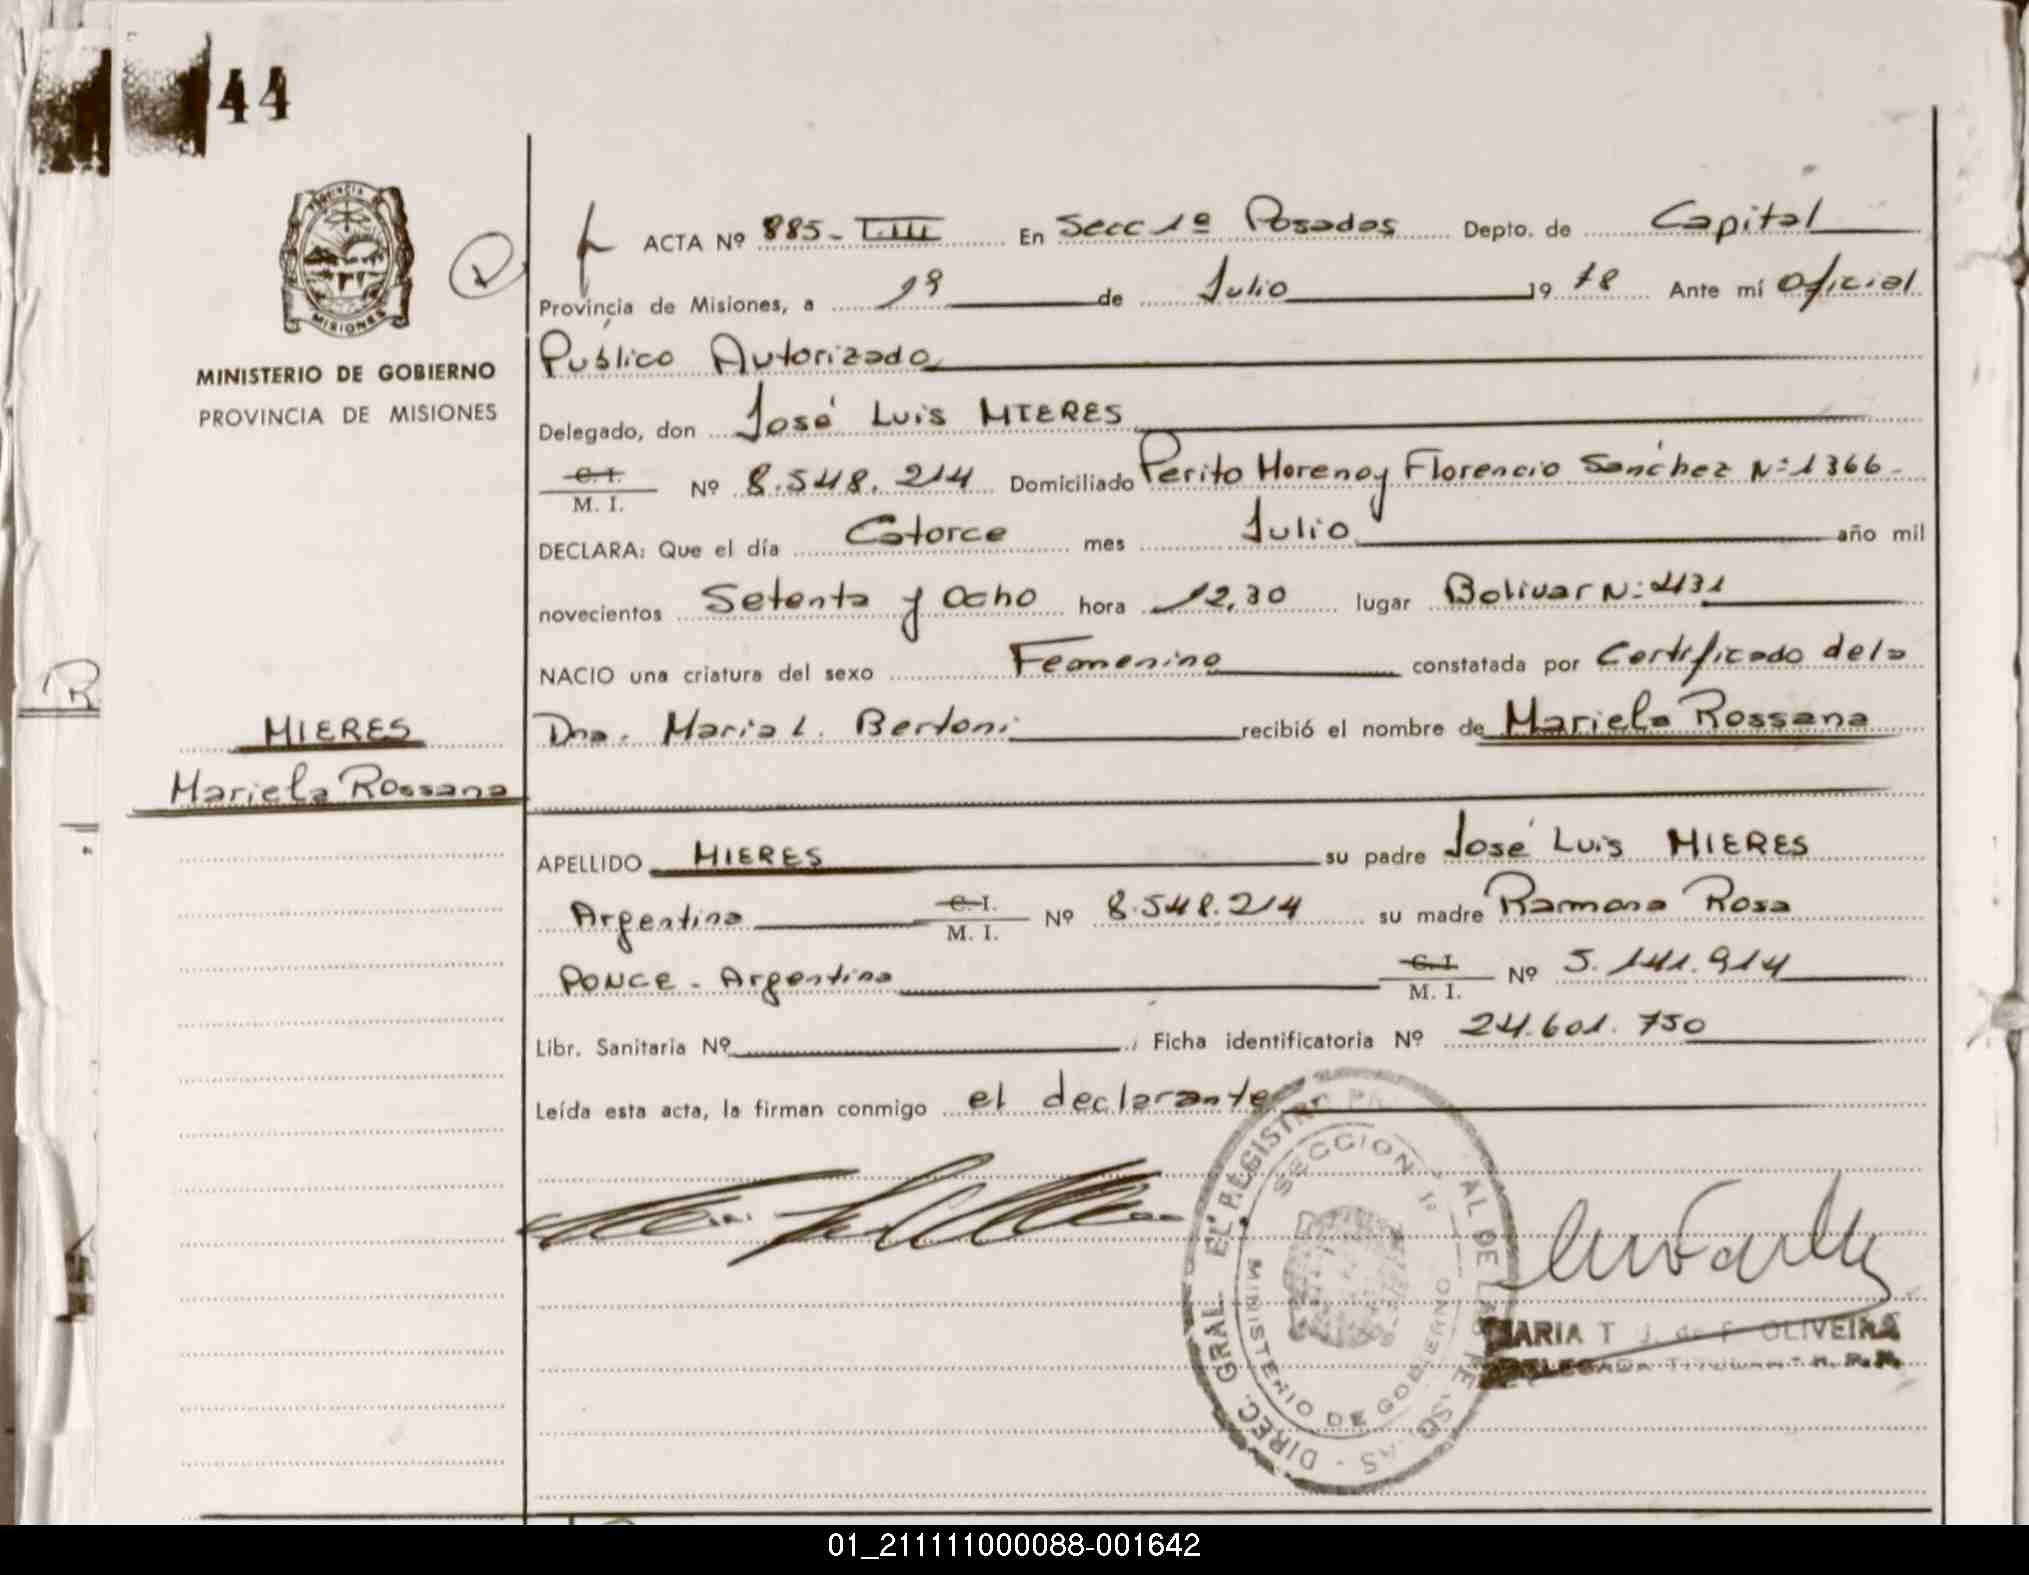 44
PROVINCIA DE
MISIONES
MINISTERIO DE GOBIERNO
PROVINCIA DE MISIONES
ACTA Nº 885 - T.III En Secc 1º Posadas Depto. de Capital
Provincia de Misiones, a 19 de Julio 19 78 Ante mí Oficial
Público Autorizado
Delegado, don José Luis MIERES
C. I.
M. I. Nº 8.548.214 Domiciliado Perito Moreno y Florencio Sánchez Nº 1366-
DECLARA: Que el día Catorce mes Julio año mil
novecientos Setenta y Ocho hora 12,30 lugar Bolivar Nº 2131
NACIO una criatura del sexo Femenino constatada por Certificado de la
Dra. Maria L. Bertoni recibió el nombre de Mariela Rossana
MIERES
Mariela Rossana
APELLIDO MIERES su padre José Luis MIERES
Argentino C. I.
M. I. Nº 8.548.214 su madre Ramona Rosa
PONCE - Argentina C. I.
M. I. Nº 5.141.914
Libr. Sanitaria Nº Ficha identificatoria Nº 24.601.750
Leída esta acta, la firman conmigo el declarante
DIREC. GRAL. DEL REGISTRO PR AL DE LAS PERSONAS
SECCION 1ª
MINISTERIO DE GOBIERNO
MARIA T. J. de F. OLIVEIRA
DELEGADA TITULAR
R
01_211111000088-001642